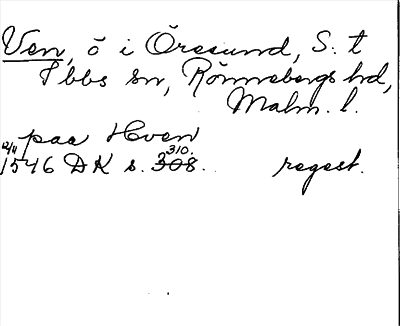 Ven, ö i Öresund, S:t
Ibbs sn, Rönnebergs hd,
Malm. l.
paa Hven
12/11 310.
1546 DK s. 308. regest.